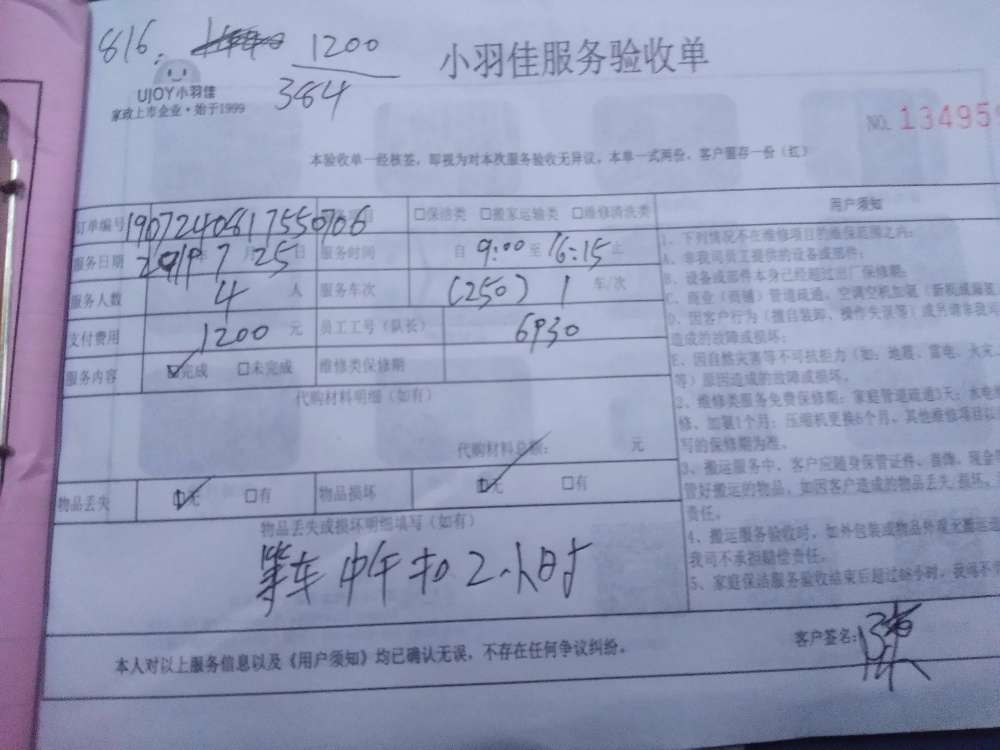 816. 1200
384
小羽佳服务验收单
UJOY小羽佳
家政上市企业·始于1999
NO. 134959
本验收单一经核签,即视为对本次服务验收无异议,本单一式两份,客户留存一份(红)
订单编号 1907240817550706 项目 □保洁类 □搬家运输类 □维修清洗类
服务日期 2019年7月25日 服务时间 自 9:00 至 16:15 止
服务人数 4 人 服务车次 (250) 1 车/次
支付费用 1200 元 员工工号(队长) 6930
服务内容 ☑完成 □未完成 维修类保修期
代购材料明细(如有)
代购材料总额: 元
物品丢失 ☑无 □有 物品损坏 ☑无 □有
物品丢失或损坏明细填写(如有)
等车 中午扣2小时
用户须知
1、下列情况不在维修项目的维保范围之内:
A、非我司员工提供的设备或部件;
B、设备或部件本身已经超过出厂保修期;
C、商业(商铺)管道疏通、空调空机加氨(新机或漏氨
D、因客户行为(擅自装卸、操作失误等)或另请非我司
造成的故障或损坏;
E、因自然灾害等不可抗拒力(如:地震、雷电、火灾、
等)原因造成的故障或损坏。
2、维修类服务免费保修期:家庭管道疏通3天;水电维
修、加氨1个月;压缩机更换6个月。其他维修项目以
写的保修期为准。
3、搬运服务中,客户应随身保管证件、首饰、现金
管好搬运的物品,如因客户造成的物品丢失/损坏,
责任。
4、搬运服务验收时,如外包装或物品外观无搬运
我司不承担赔偿责任。
5、家庭保洁服务验收结束后超过48小时,我司不
本人对以上服务信息以及《用户须知》均已确认无误,不存在任何争议纠纷。
客户签名: